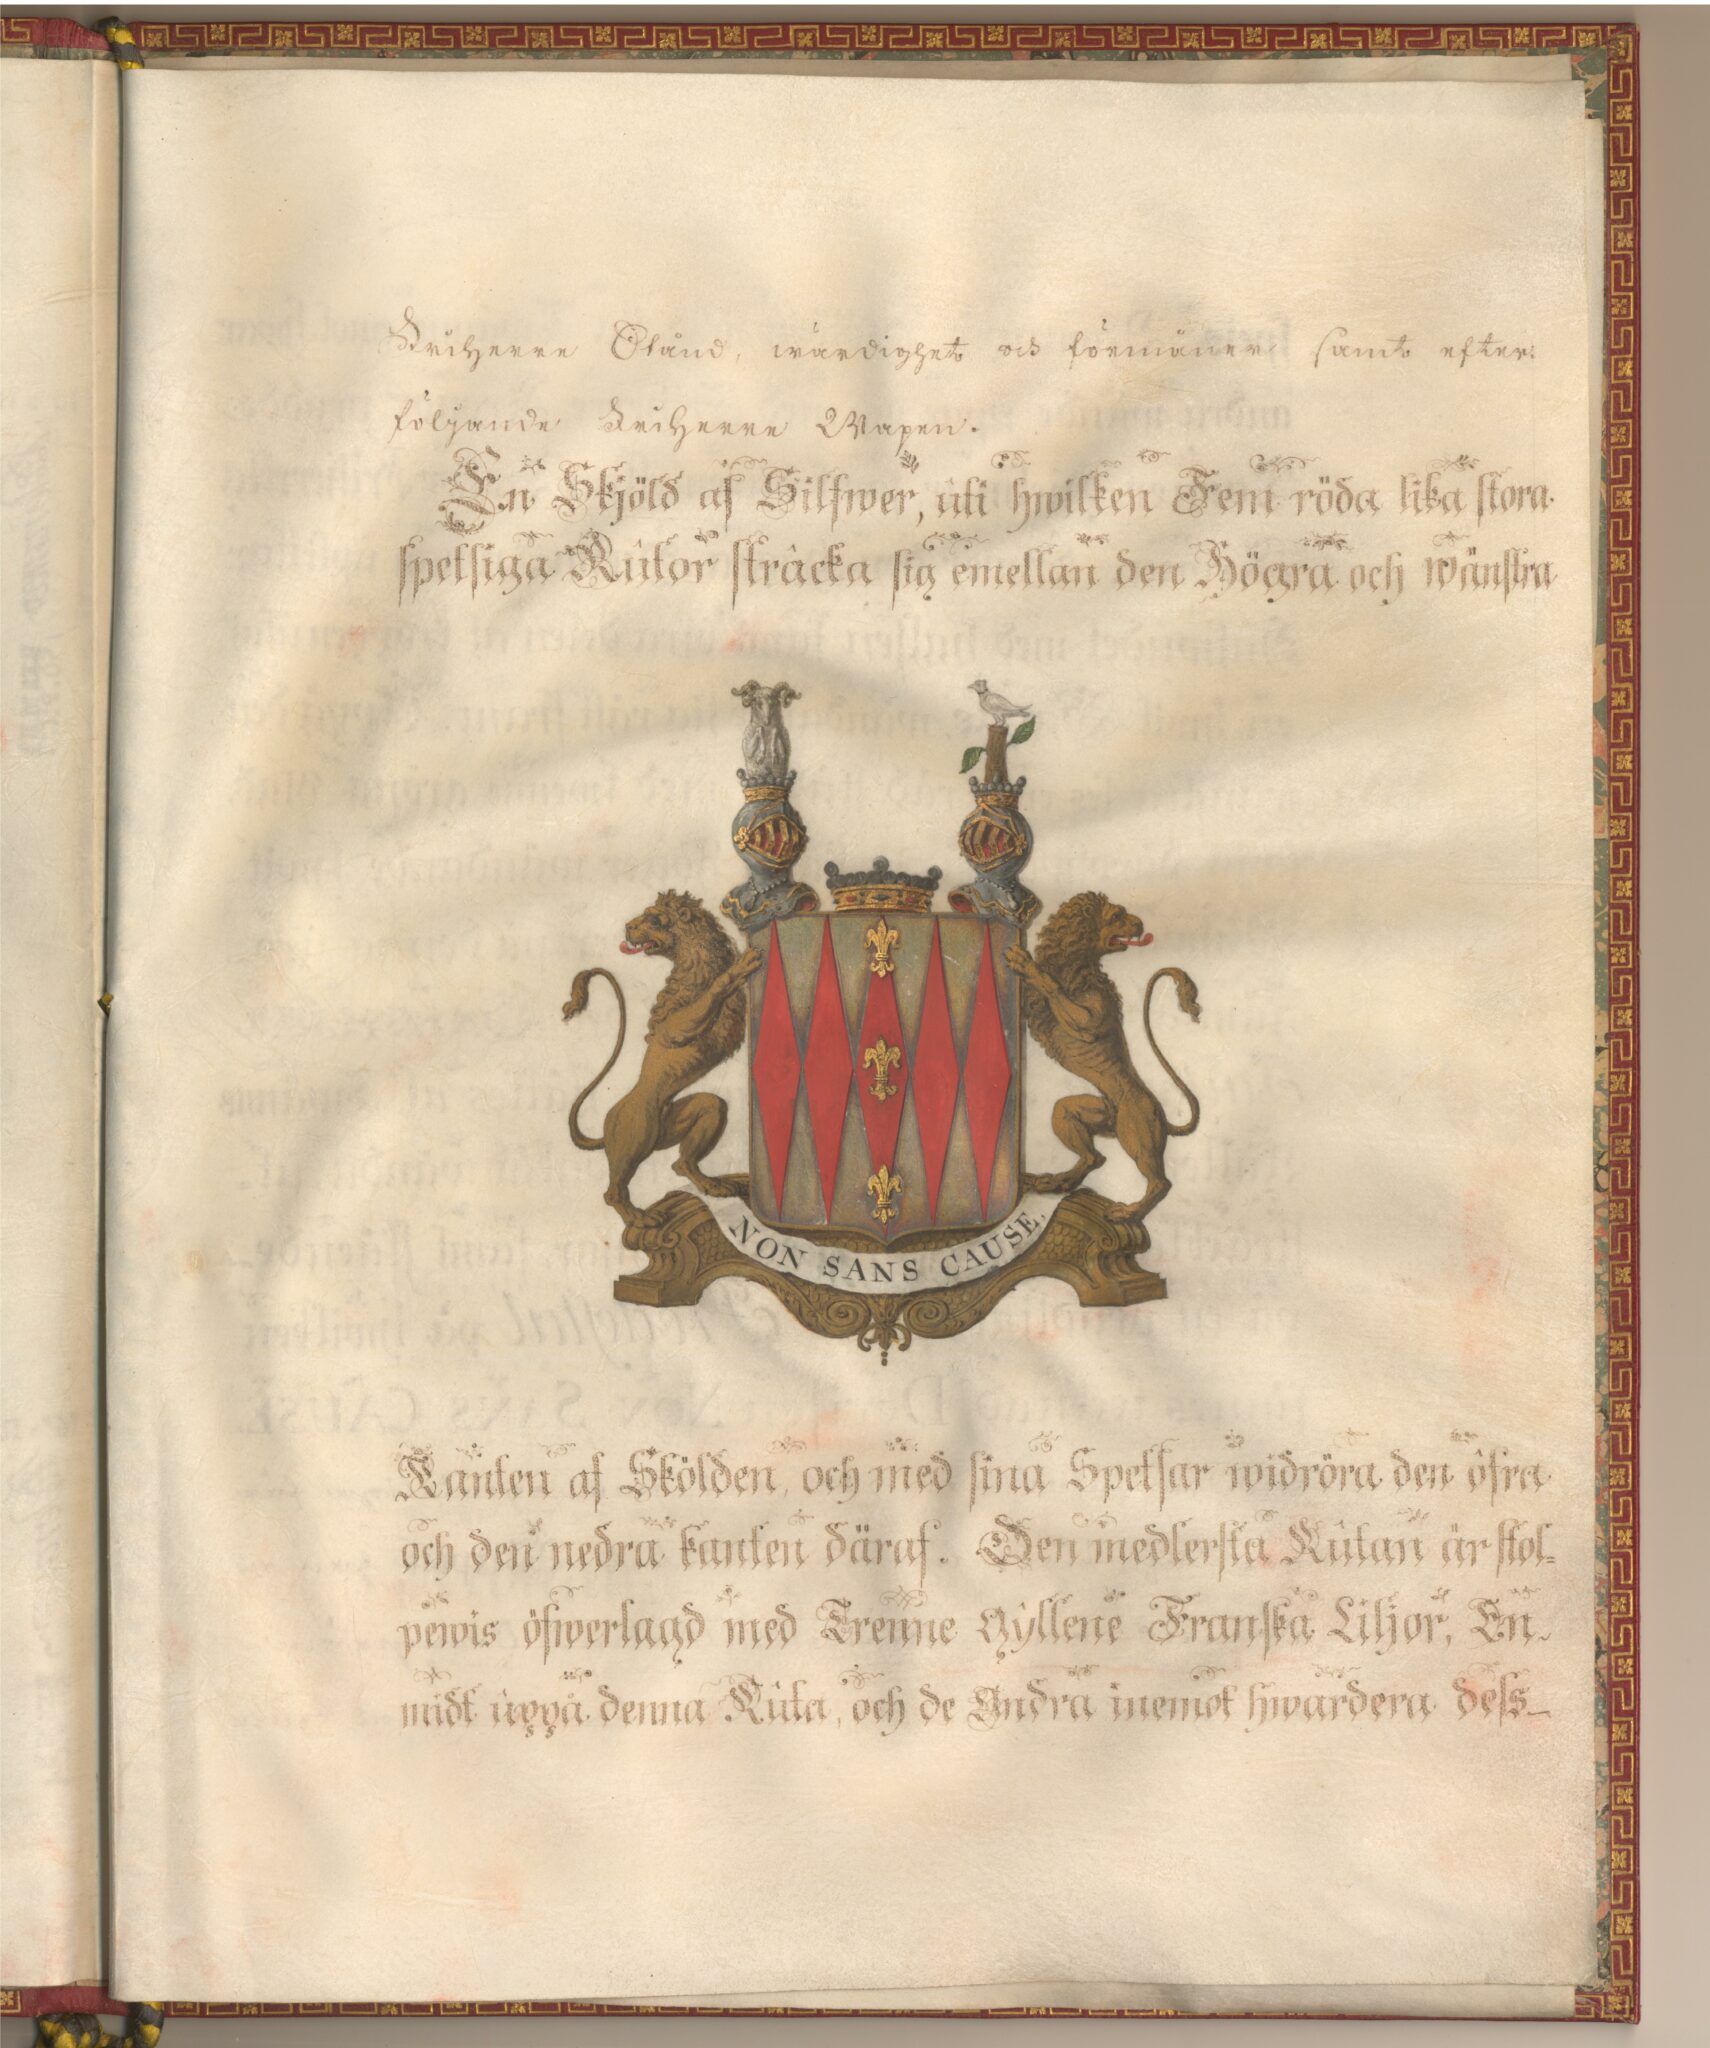 FriHerre Stånd, wärdighet och förmåner samt efter:
följande FriHerre Wapen.
En Skjöld af Silfwer, uti hwilken Fem röda lika stora
spetsiga Rutor sträcka sig emellan den Högra och wänstra
NON SANS CAUSE,
Kanten af Skölden, och med sina Spetsar widröra den öfra
och den nedra kanten däraf. Den medlersta Rutan är stol=
pewis öfwerlagd med Trenne Gyllene Franska Liljor, En
midt uppå denna Ruta, och de Andra inemot hwardera dess